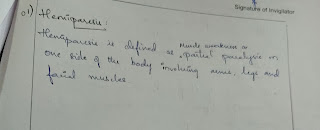 Signature of Invigilator
01) Hemiparesis :
Hemiparesis is defined as Muscle weakness or
partial paralysis on
one side of the body involving arms, legs and
facial muscles.